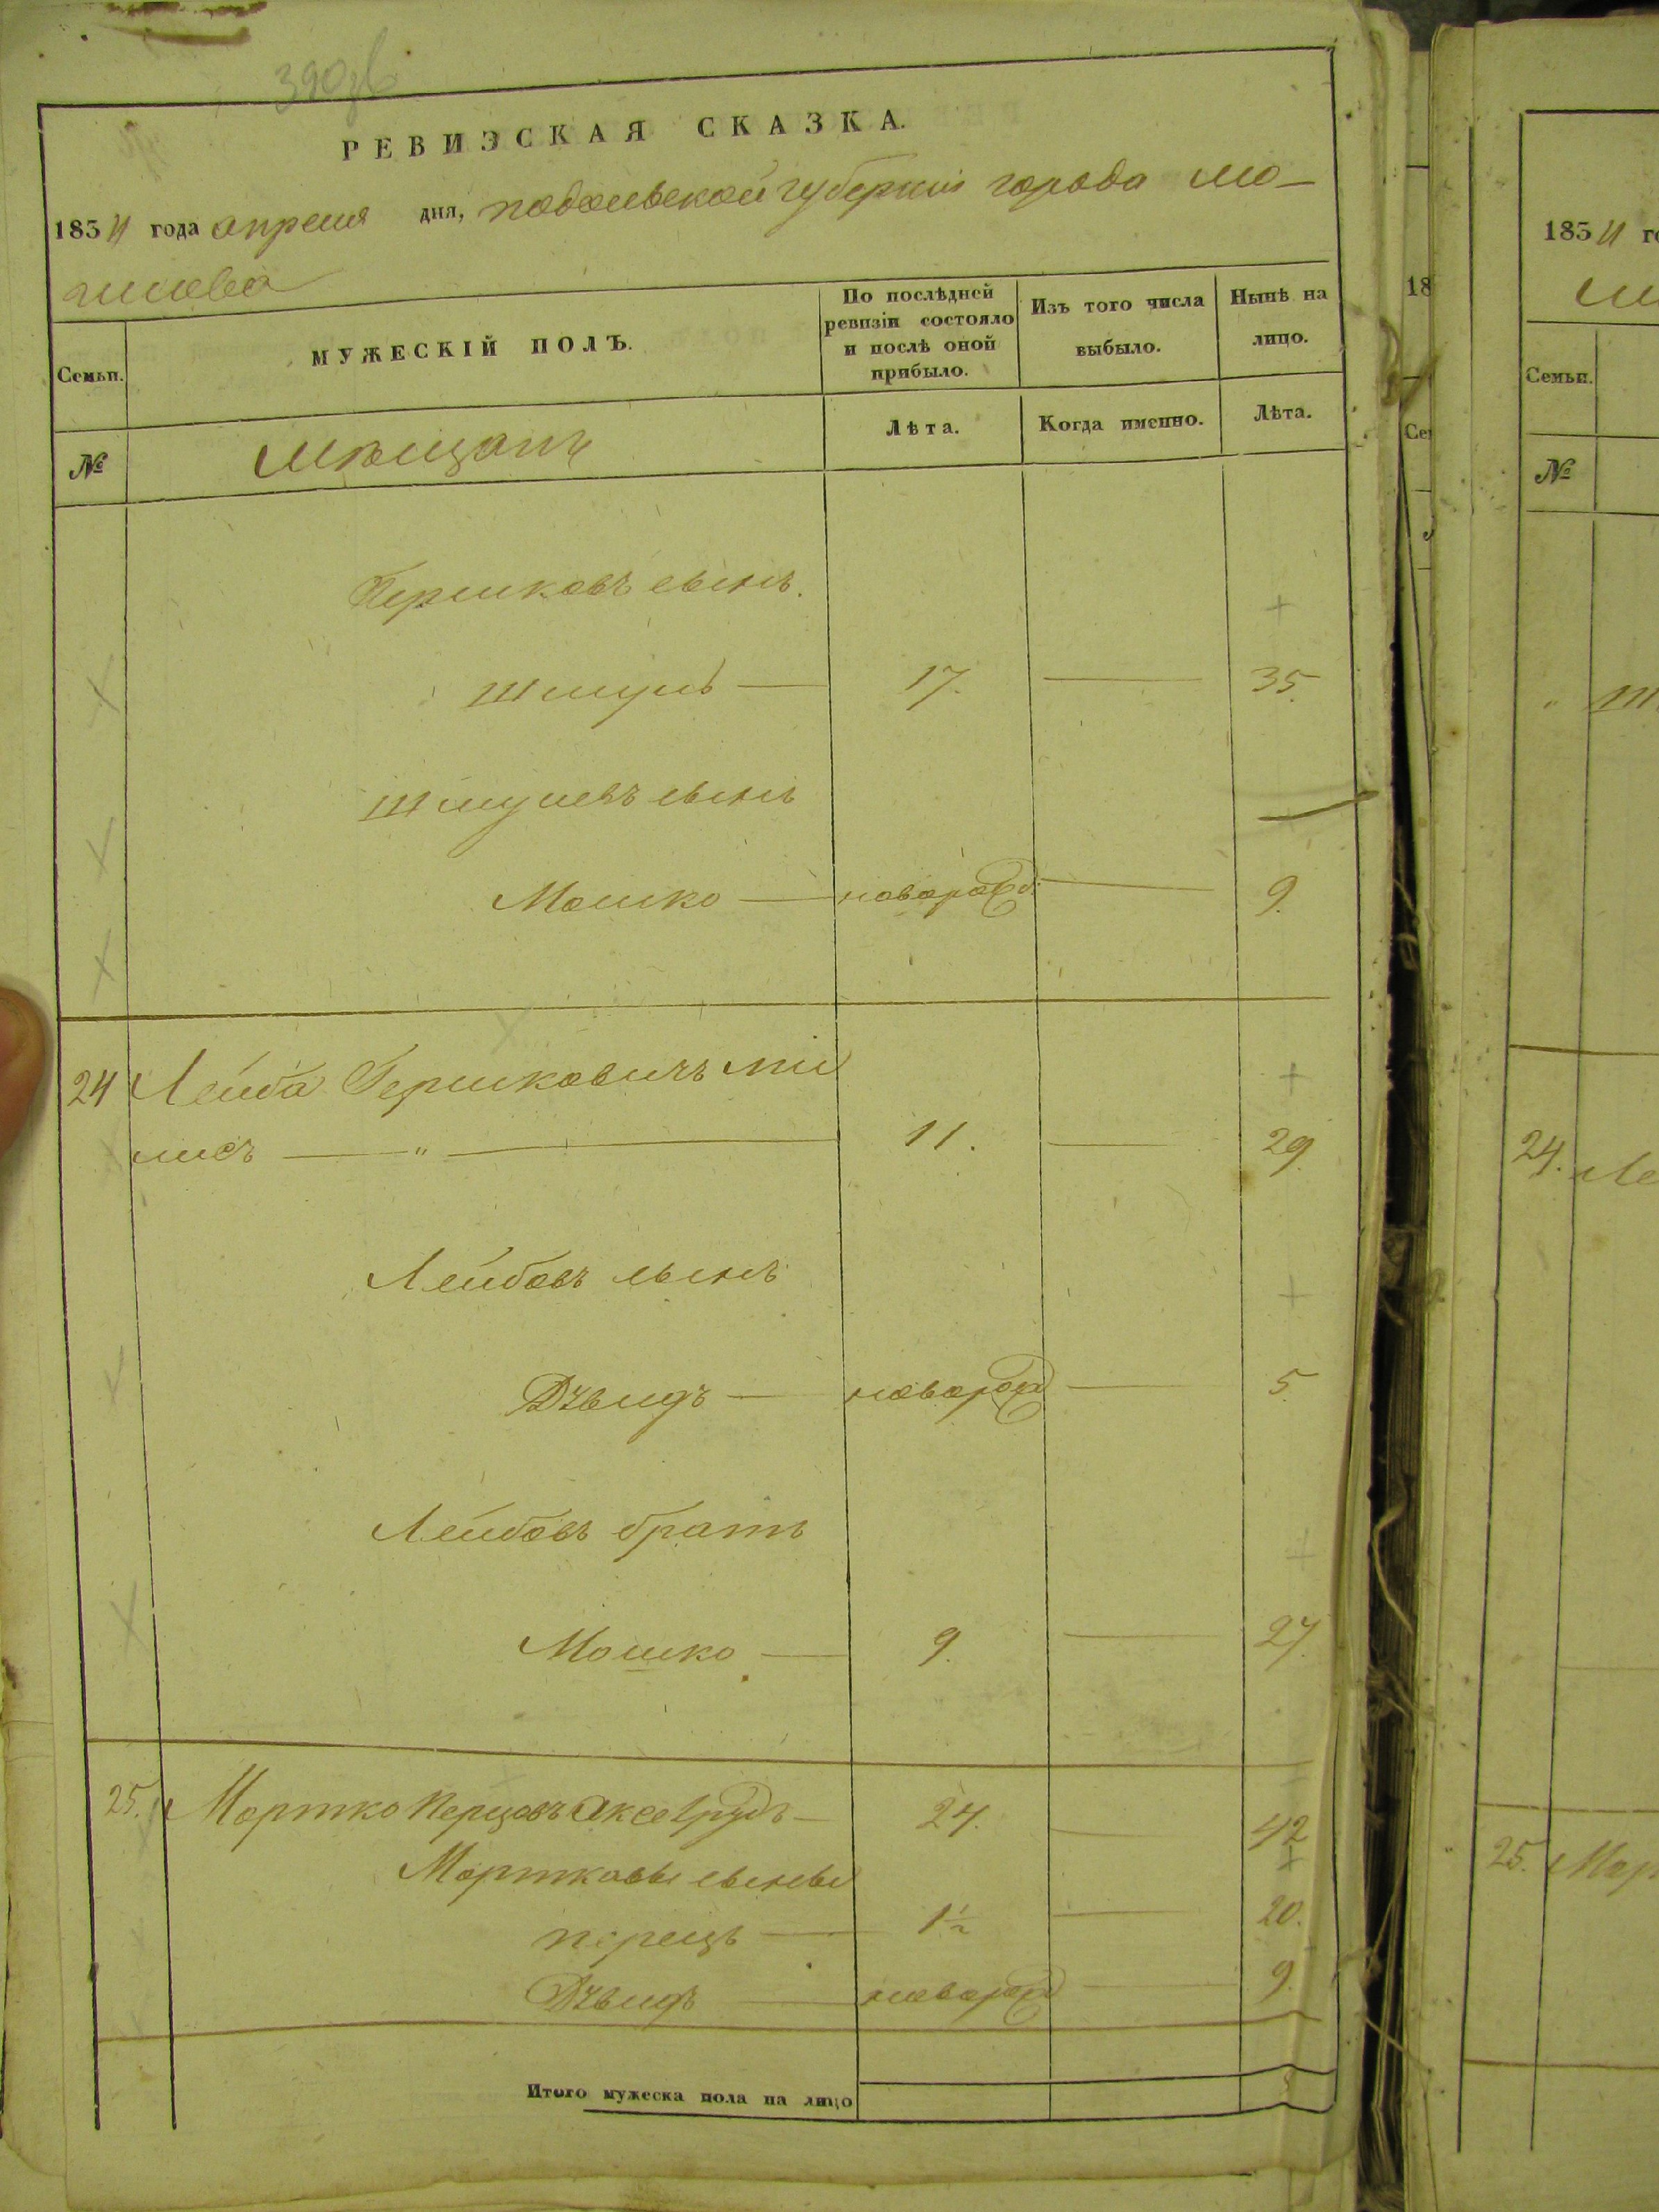 390об
РЕВИЭСКАЯ СКАЗКА.
1854 года апреля дня, подольской губернии города мо-
гилева
Семьи.
МУЖЕСКІЙ ПОЛЪ.
По послѣдней ревизіи состояло и послѣ оной прибыло.
Изъ того числа выбыло.
Нынѣ на лицо.
№
Мѣщанъ
Лѣта.
Когда именно.
Лѣта.
Гершковъ сынъ.
Шмуль — 17. — 35.
Шмулевъ сынъ
Мошко — новорожд: — 9.
24 Лейба Гершковичъ
11. — 29.
Лейбовъ сынъ
— новорожд — 5.
Лейбовъ братъ
Мошко — 9. — 27.
25. Мортко Перцовъ Аксельрудъ — 24. — 42
Мортковы сыновья
перецъ — 1½ — 20.
— новорожд — 9.
Итого мужеска пола на лицо
1854 го
Семьи.
№
24. Ле
25. Мор
18